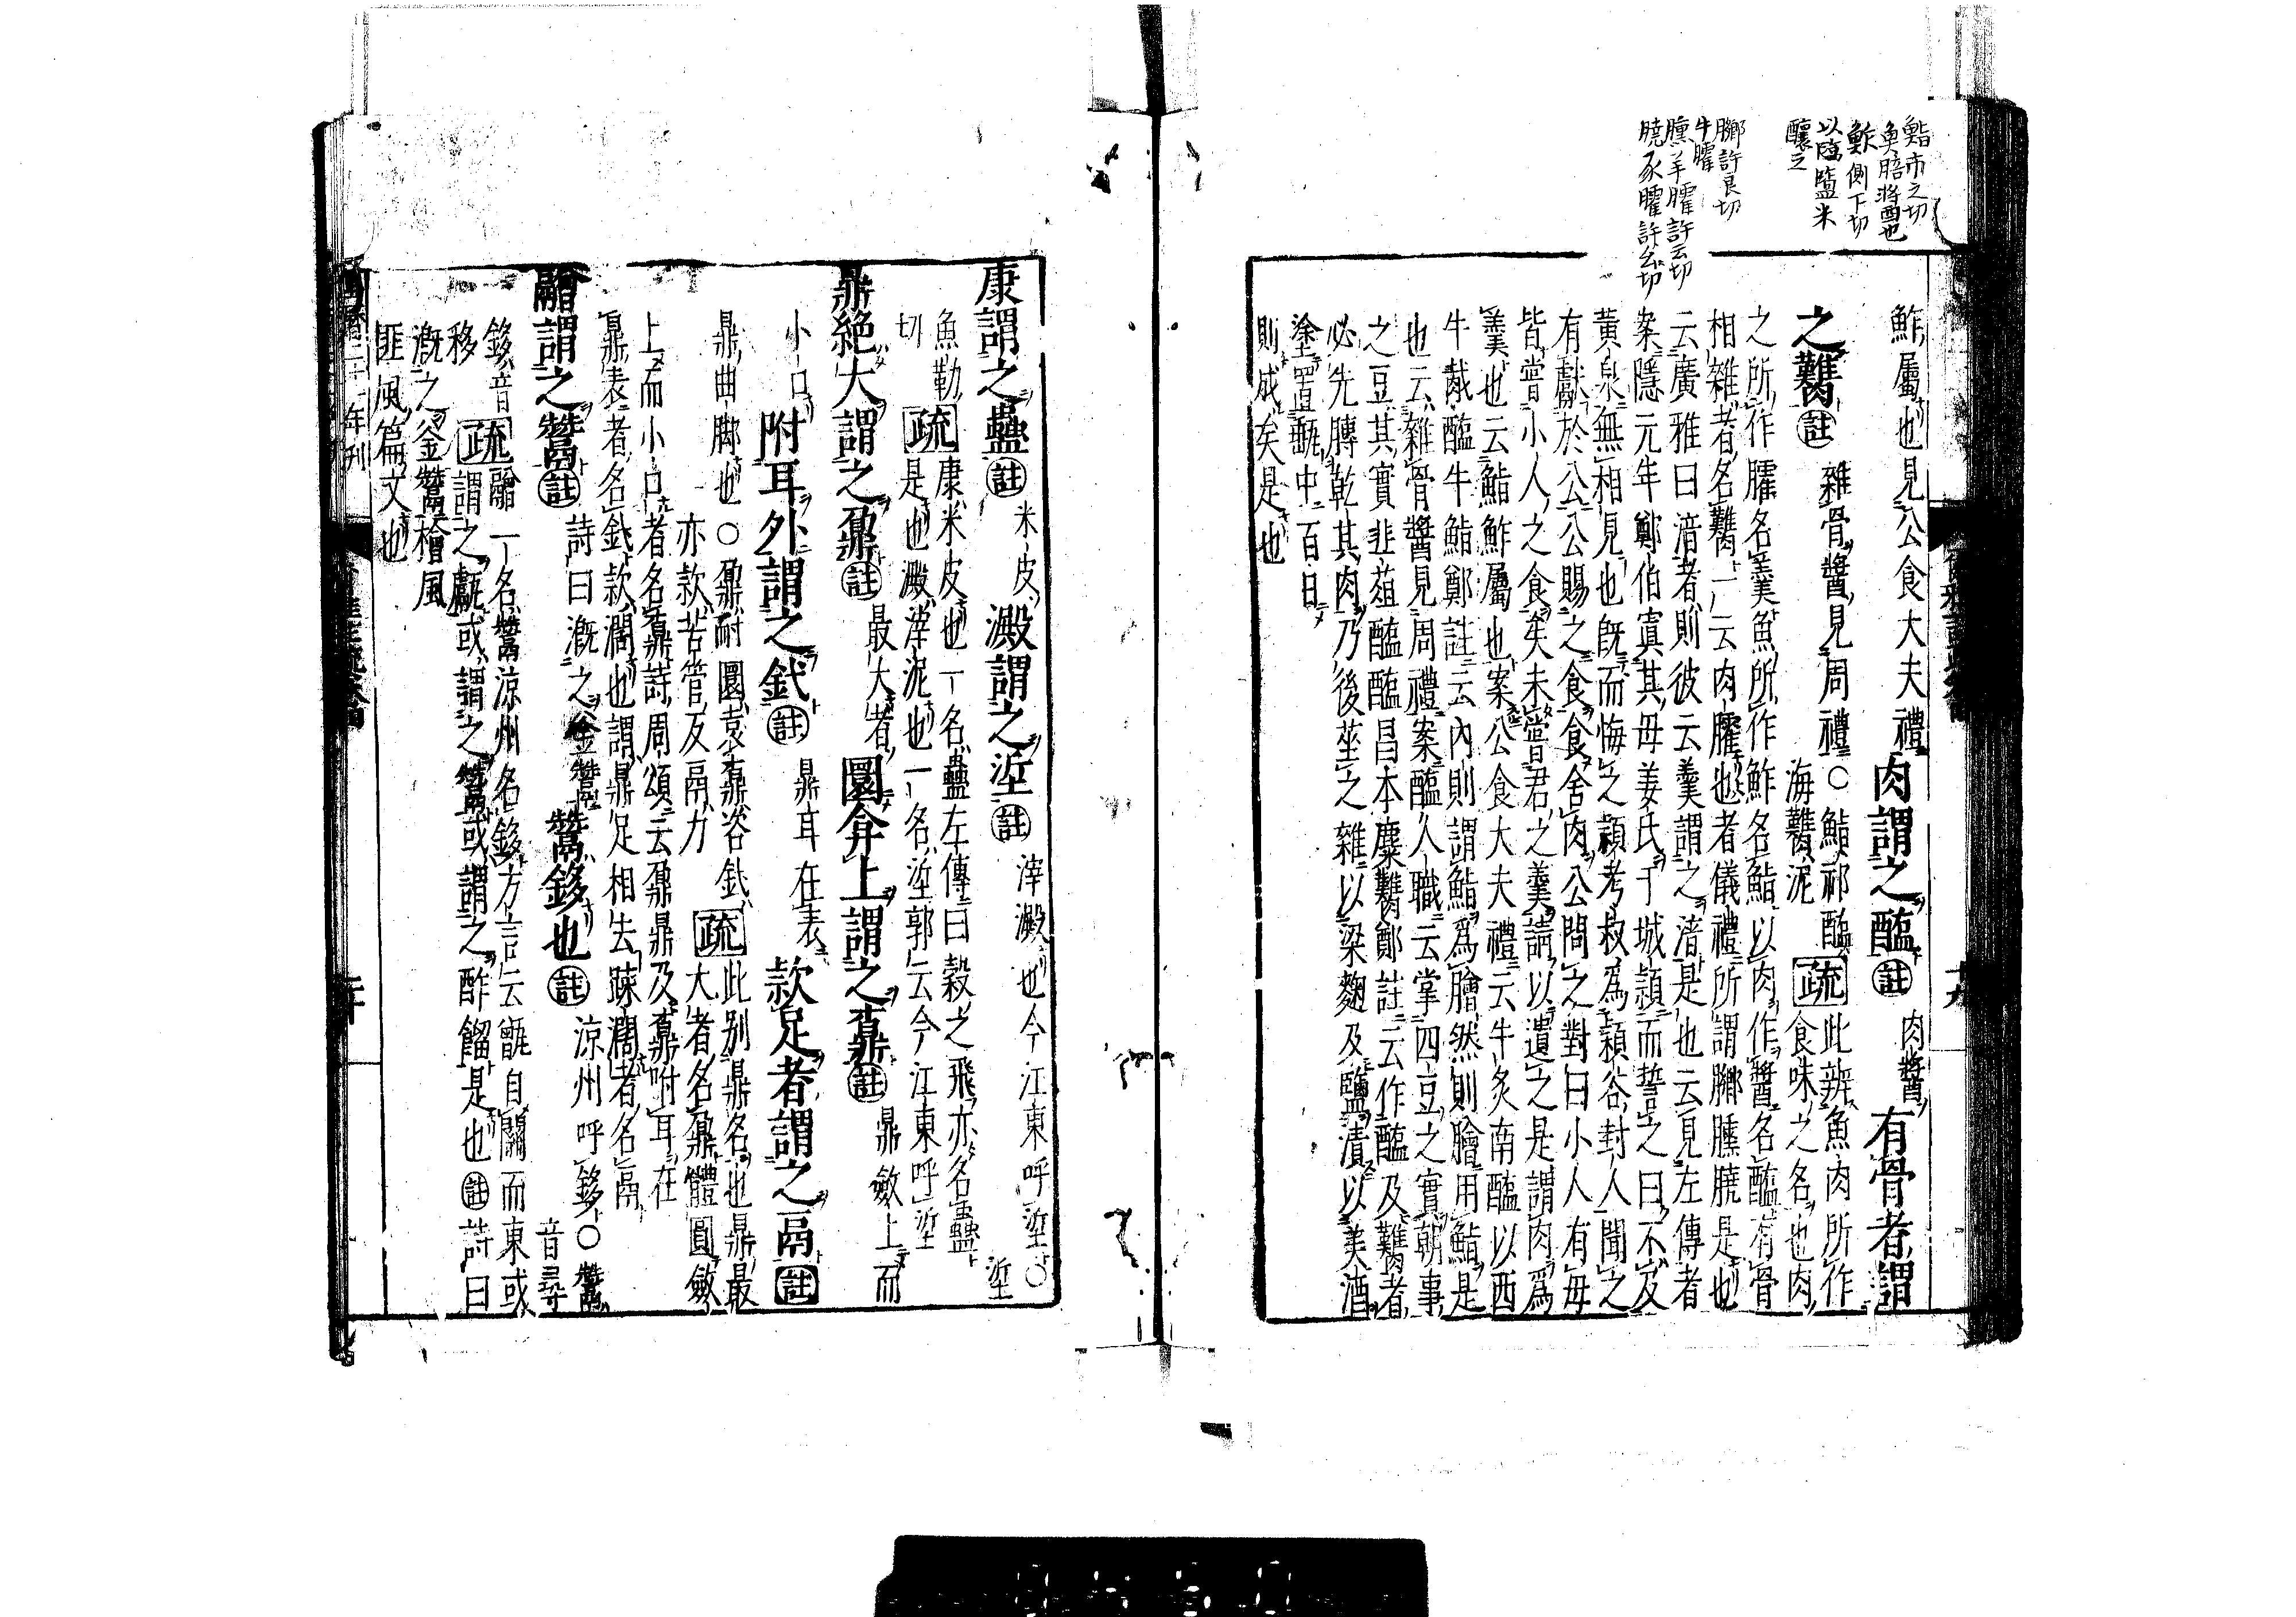 鮨市之切
魚䏽將酉也
鮓側下切
以𨤲鹽米
釀之
膷許良切
牛臛
臐羊臛許云切
膮豕臛許幺切
鮓屬也見公食大夫禮 肉謂之醢 註 肉醬 有骨者謂
之臡 註 雜骨醬見周禮○鮨祁醢海臡泥 疏 此辨魚肉所作食味之名也肉
之所作臛名羹魚所作鮓名鮨以肉作醬名醢有骨
相雜者名臡 一云肉臛也者儀禮所謂膷臐膮是也
云廣雅曰湇者則彼云羹謂之湇是也云見左傳者
案隱元年鄭伯寘其母姜氏于城潁而誓之曰不及
黃泉無相見也既而悔之潁考叔為潁谷封人聞之
有獻於公公賜之食食舍肉公問之對曰小人有母
皆嘗小人之食矣未嘗君之羹請以遺之是謂肉為
羹也云鮨鮓屬也案公食大夫禮云牛炙南醢以西
牛胾醢牛鮨鄭註云內則謂鮨為膾然則膾用鮨是
也云雜骨醬見周禮案醢人職云掌四豆之實朝事
之豆其實韭菹醓醢昌本麋臡鄭註云作醢及臡者
必先膊乾其肉乃後莝之雜以粱麴及鹽漬以美酒
塗置甀中百日
則成矣是也
康謂之蠱 註 米皮 澱謂之垽 註 滓澱也今江東呼垽○垽
魚勒切 疏 康米皮也一名蠱左傳曰穀之飛亦名蠱
是也澱滓泥也一名垽郭云今江東呼垽
鼎絕大謂之鼐 註 最大者 圜弇上謂之鼒 註 鼎斂上而
小口 附耳外謂之釴 註 鼎耳在表 款足者謂之鬲 註
鼎曲脚也○鼐耐圜袁鼒咨釴亦款苦管反鬲力 疏 此別鼎名也鼎最大者名鼐體圓斂
上而小口者名鼒詩周頌云鼐鼎及鼒附耳在
鼎表者名釴款濶也謂鼎足相去踈濶者名鬲
䰝謂之鬵 註 詩曰漑之釜鬵 鬵鉹也 註 涼州呼鉹○鬵音尋
鉹音移 疏 䰝一名鬵涼州名鉹方言云甑自關而東或
謂之甗或謂之鬵或謂之酢餾是也 註 詩曰
漑之釜鬵檜風
匪風篇文也